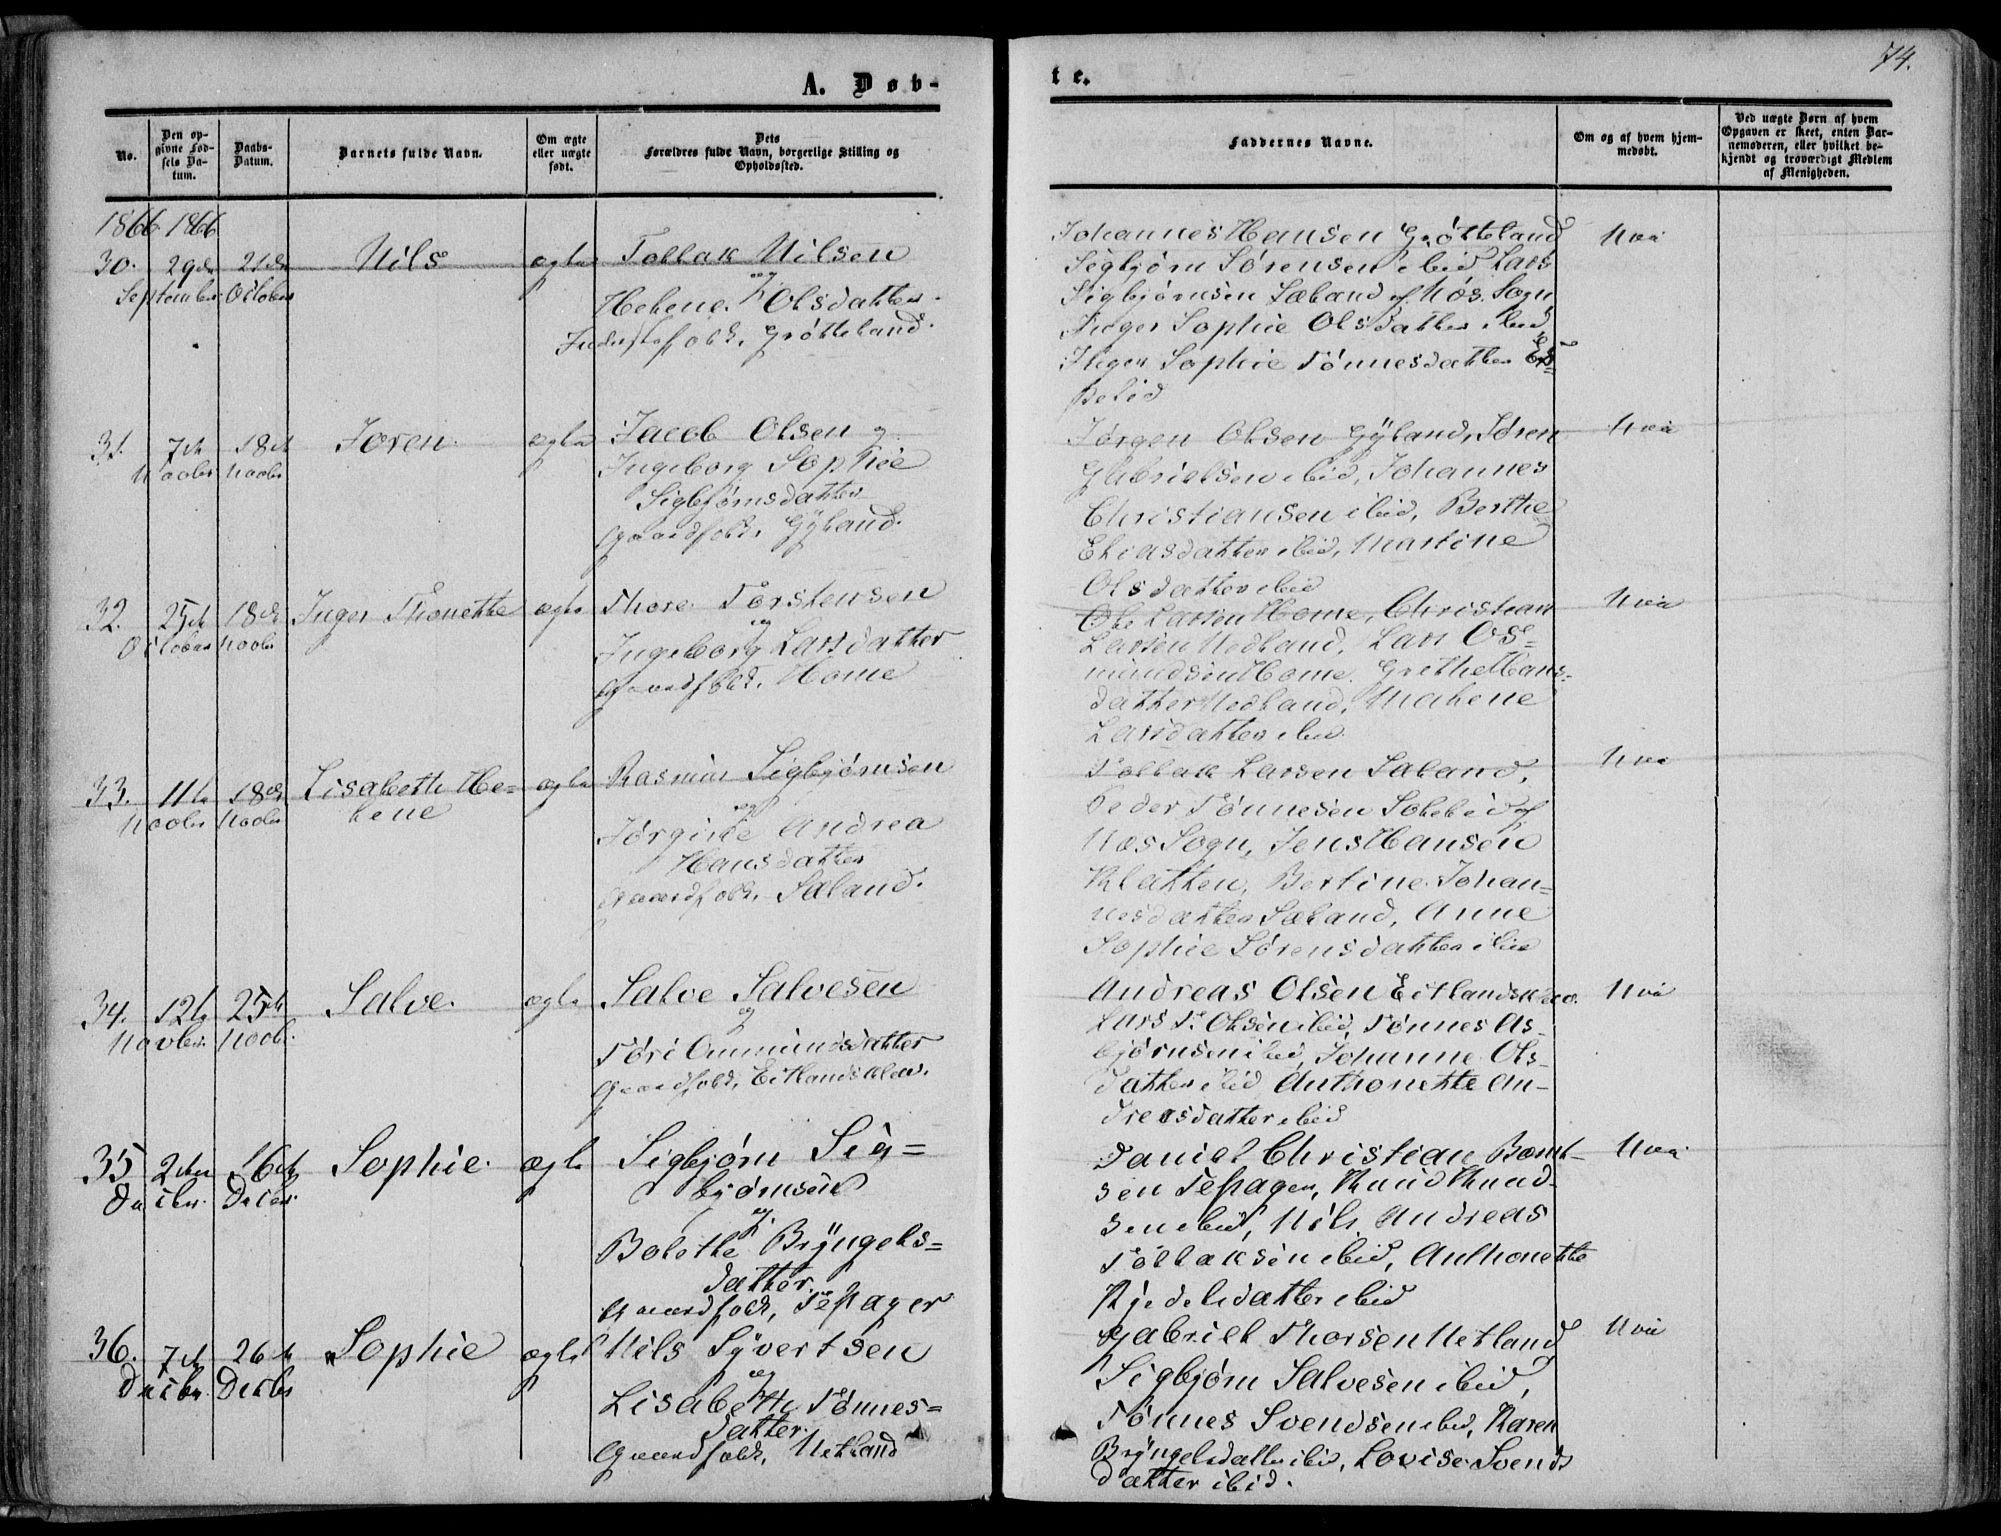 74.
A. Døb-
te.
No.
Den op-
givne Fød-
sels Da-
tum.
Daabs-
Datum.
Barnets fulde Navn.
Om ægte
eller uægte
født.
Dets
Forældres fulde Navn, borgerlige Stilling og
Opholdssted.
Faddernes Navne.
Om og af hvem hjem-
medøbt.
Ved uægte Børn af hvem
Opgaven er skeet, enten Bar-
nemoderen, eller hvilket be-
kjendt og troværdigt Medlem
af Menigheden.
1866 1866
30. 29de 21de Nils ægte Tollak Nilsen
September October
og
Helene Olsdatter
Grøtteland.
Johannes Hansen Grøtteland
Sigbjørn Sørensen ibid, Lars
Sigbjørnsen Sæland af Næs Sogn
Inger Sophie Olsdatter ibid,
Inger Sophie Tønnesdatter Es-
pelid
31. 7de 18de Joren ægte Jacob Olsen og
Novbr Novbr
Ingeborg Sophie
Sigbjørnsdatter
Gaardfolk, Gyland.
Jørgen Olsen Gyland, Søren
Gabrielsen ibid, Johannes
Christiansen ibid, Berthe
Eliasdatter ibid, Martine
Olsdatter ibid
32. 25de 18de Inger Thonette ægte Thore Torstensen
October Novbr
og
Ingeborg Larsdatter
Gaardfolk, Home
Ole Larsen Home, Christian
Larsen Nedland, Lars Os-
mundsen Home, Grethe Hans-
datter Nedland, Malene
Larsdatter ibid
33. 11te 18de Lisabeth He- ægte Rasmus Sigbjørnsen
Novbr Novbr lene
og
Jørgine Andrea
Hansdatter
Gaardfolk, Sæland.
Tollak Larsen Sæland,
Peder Tønnesen Solelid af
Næs Sogn, Jens Hansen
Klatten, Bertine Johan-
nesdatter Sæland, Anne
Sophie Sørensdatter ibid
34. 12te 25de Salve. ægte Salve Salvesen
Novbr. Novbr.
og
Tøri Ommundsdatter
Gaardfolk, Eitlandsklev.
Andreas Olsen Eitlandsklev.
Lars T. Olsen ibid, Tønnes As-
bjørnsen ibid, Johanne Ols-
datter ibid Anthonette An-
dreasdatter ibid
35 2den 16de Sophie. ægte Sigbjørn Sig-
Decbr. Decbr.
bjørnsen
og
Bolette Bryngels-
datter.
Gaardfolk, Tesager
Daniel Christian Bernt-
sen Tesager, Knud Knud-
sen ibid, Nils Andreas
Tollaksen ibid, Anthonette
Kjedelsdatter ibid
36. 7de 26de Sophie ægte Nils Syvertsen
Decbr. Decbr
og
Lisabeth Tønnes-
datter.
Gaardfolk, Netland
Gabriel Thorsen Netland
Sigbjørn Salvesen ibid,
Tønnes Svendsen ibid, Karen
Bryngelsdatter ibid, Lovise Svends
datter ibid.